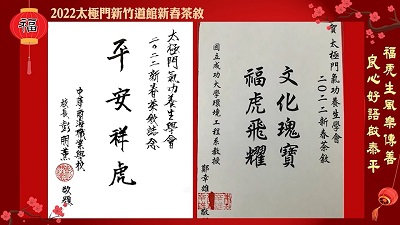 2022太極門新竹道館新春茶敘
福
福虎生風樂傳善
良心好語啟泰平
太極門氣功養生學會
二〇二二新春茶敘誌念
平安祥虎
校長彭明薰
敬題
賀太極門氣功養生學會
二〇二二新春茶敘
文化瑰寶
福虎飛耀
國立成功大學環境工程系教授
鄭幸雄
敬